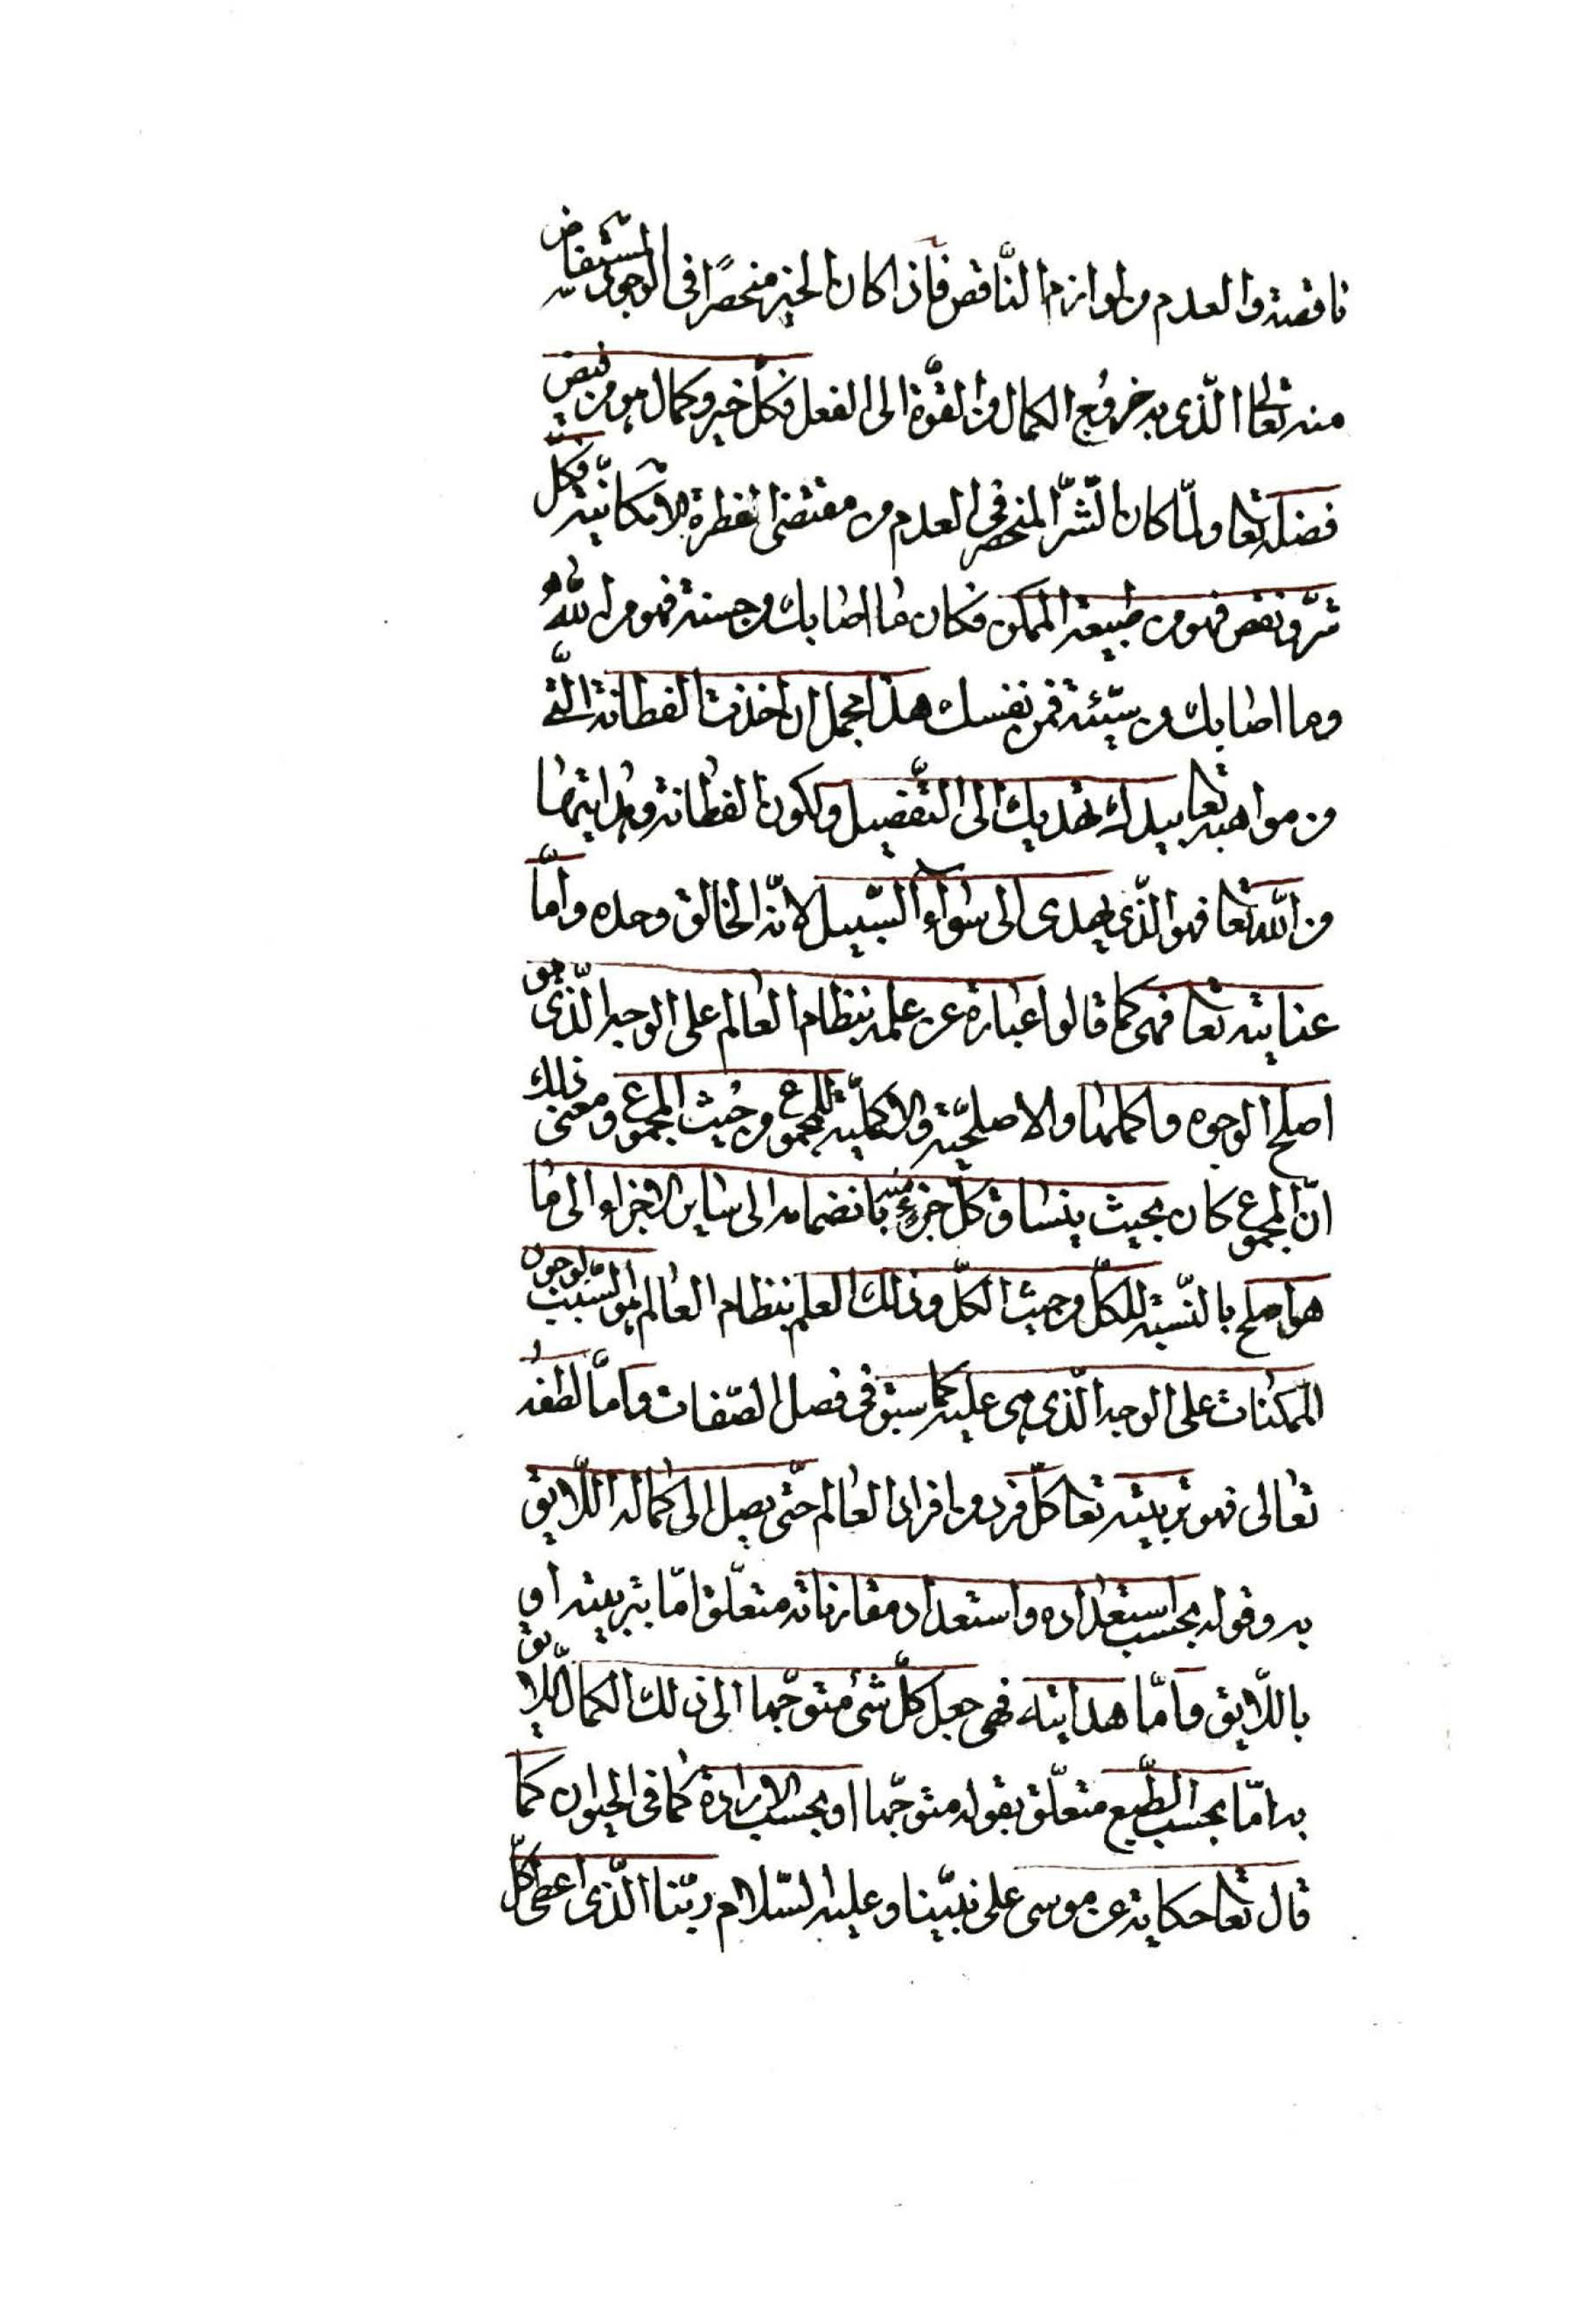 ناقصة والعدم من لوازم النّاقص فاذا كان الخير منحصرًا فى الوجود المستفاض
منه تعالى الّذى به خروج الكمال من القوّة الى الفعل فكلّ خير وكمال هو من فيض
فضله تعا ولمّا كان الشّرّ المنحصر فى العدم من مقتضى الفطرة الامكانيّة فكلّ
شرّ ونقص فهو من طبيعة الممكن فكان ما اصابك من حسنة فمن الله
وما اصابك من سيّئة فمن نفسك هذا مجمل ان اخذت الفطانة الّتى
من مواهبه تعا بيدك تهديك الى التّفصيل ولكون الفطانة وهدايتها
من الله تعا فهو الّذى يهدى الى سواء السّبيل لانّه الخالق وحده وامّا
عنايته تعا فهى كما قالوا عبارة عن علمه بنظام العالم على الوجه الّذى هو
اصلح الوجوه واكملها والاصلحيّة والاكمليّة للمجموع من حيث المجموع ومعنى ذلك
انّ المجموع كان بحيث ينساق كلّ جزء منه بانضمامه الى ساير الاجزاء الى ما
هو اصلح بالنّسبة للكلّ من حيث الكلّ وذلك العلم بنظام العالم هو السّبب لوجود
الممكنات على الوجه الّذى هى عليه كما سبق فى فصل الصّفات وامّا لطفه
تعالى فهو تربيته تعا كلّ فرد من افراد العالم حتّى يصل الى كماله اللّايق
به وقوله بحسب استعداده واستعداد مقارناته متعلّق امّا بتربيته او
باللّايق وامّا هدايته فهى جعل كلّ شئ متوجّها الى ذلك الكمال اللّايق
به امّا بحسب الطّبع متعلّق بقوله متوجّها او بحسب الارادة كما فى الحيوان كما
قال تعا حكاية عن موسى على نبيّنا وعليه السّلام ربّنا الّذى اعطى كلّ